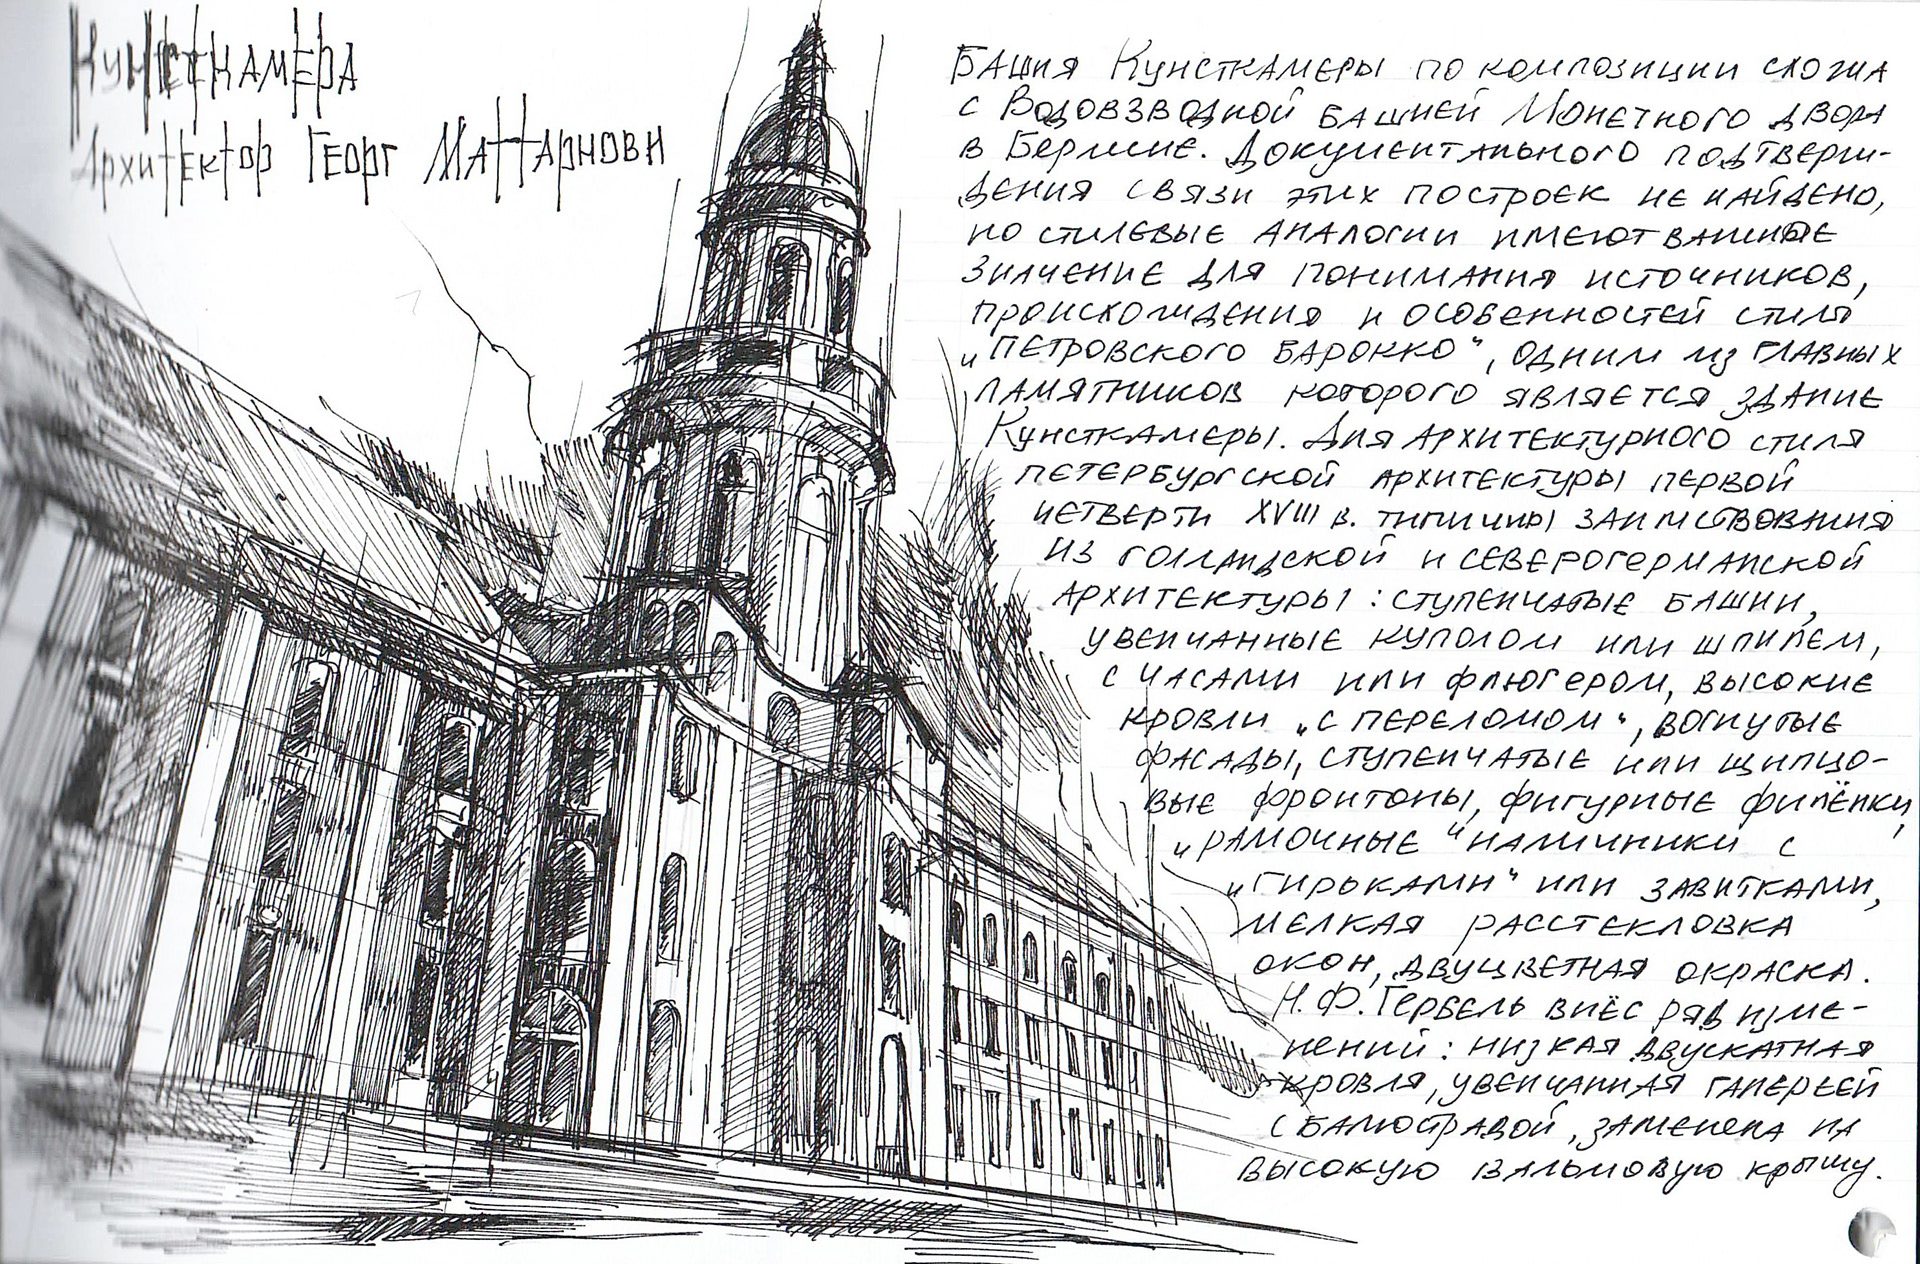 Кунсткамера
Архитектор Георг Маттарнови
Башня Кунсткамеры по композиции схожа
с Водовзводной башней Монетного двора
в Берлине. Документального подтверж-
дения связи этих построек не найдено,
но стилевые аналогии имеют важные
значение для понимания источников,
происхождения и особенностей стиля
„Петровского барокко“, одним из главных
памятников которого является здание
Кунсткамеры. Для архитектурного стиля
петербургской архитектуры первой
четверти XVIII в. типичны заимствования
из голландской и северогерманской
архитектуры: ступенчатые башни,
увенчанные куполом или шпилем,
с часами или флюгером, высокие
кровли „с переломом“, вогнутые
фасады, ступенчатые или щипцо-
вые фронтоны, фигурные филёнки,
„рамочные“ наличники с
„гирьками“ или завитками,
мелкая расстекловка
окон, двуцветная окраска.
Н. Ф. Гербель внёс ряд изме-
нений: низкая двускатная
кровля, увенчанная галереей
с балюстрадой, заменена на
высокую вальмовую крышу.